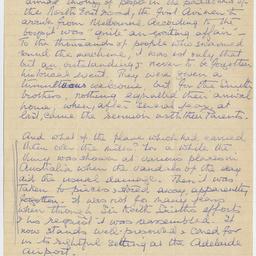 almost money of people in the particular of
the North East and, the first woman to
arrive from Melbourne. According to the
was "quite an exciting affair" -
To the thousands of people who swarmed
round the machine, it was not only that
but an outstanding & never to be forgotten
historical event. They were given a
tumultuous welcome but for the Smith
brothers, nothing equalled their arrival
home, when, after several years at
last came the reunion with their Parents.
And what of the plane which had carried
them over the miles? For a while the
Vimy was shown at various places in
Australia when the vandals of the day
did the usual damage. Then it was
taken to pieces & stored away apparently
forgotten. It was not for many years
when through Sir Keith Smith's efforts
& his request it was reassembled. It
now stands well-preserved & cared for
in its rightful setting at the Adelaide
Airport.